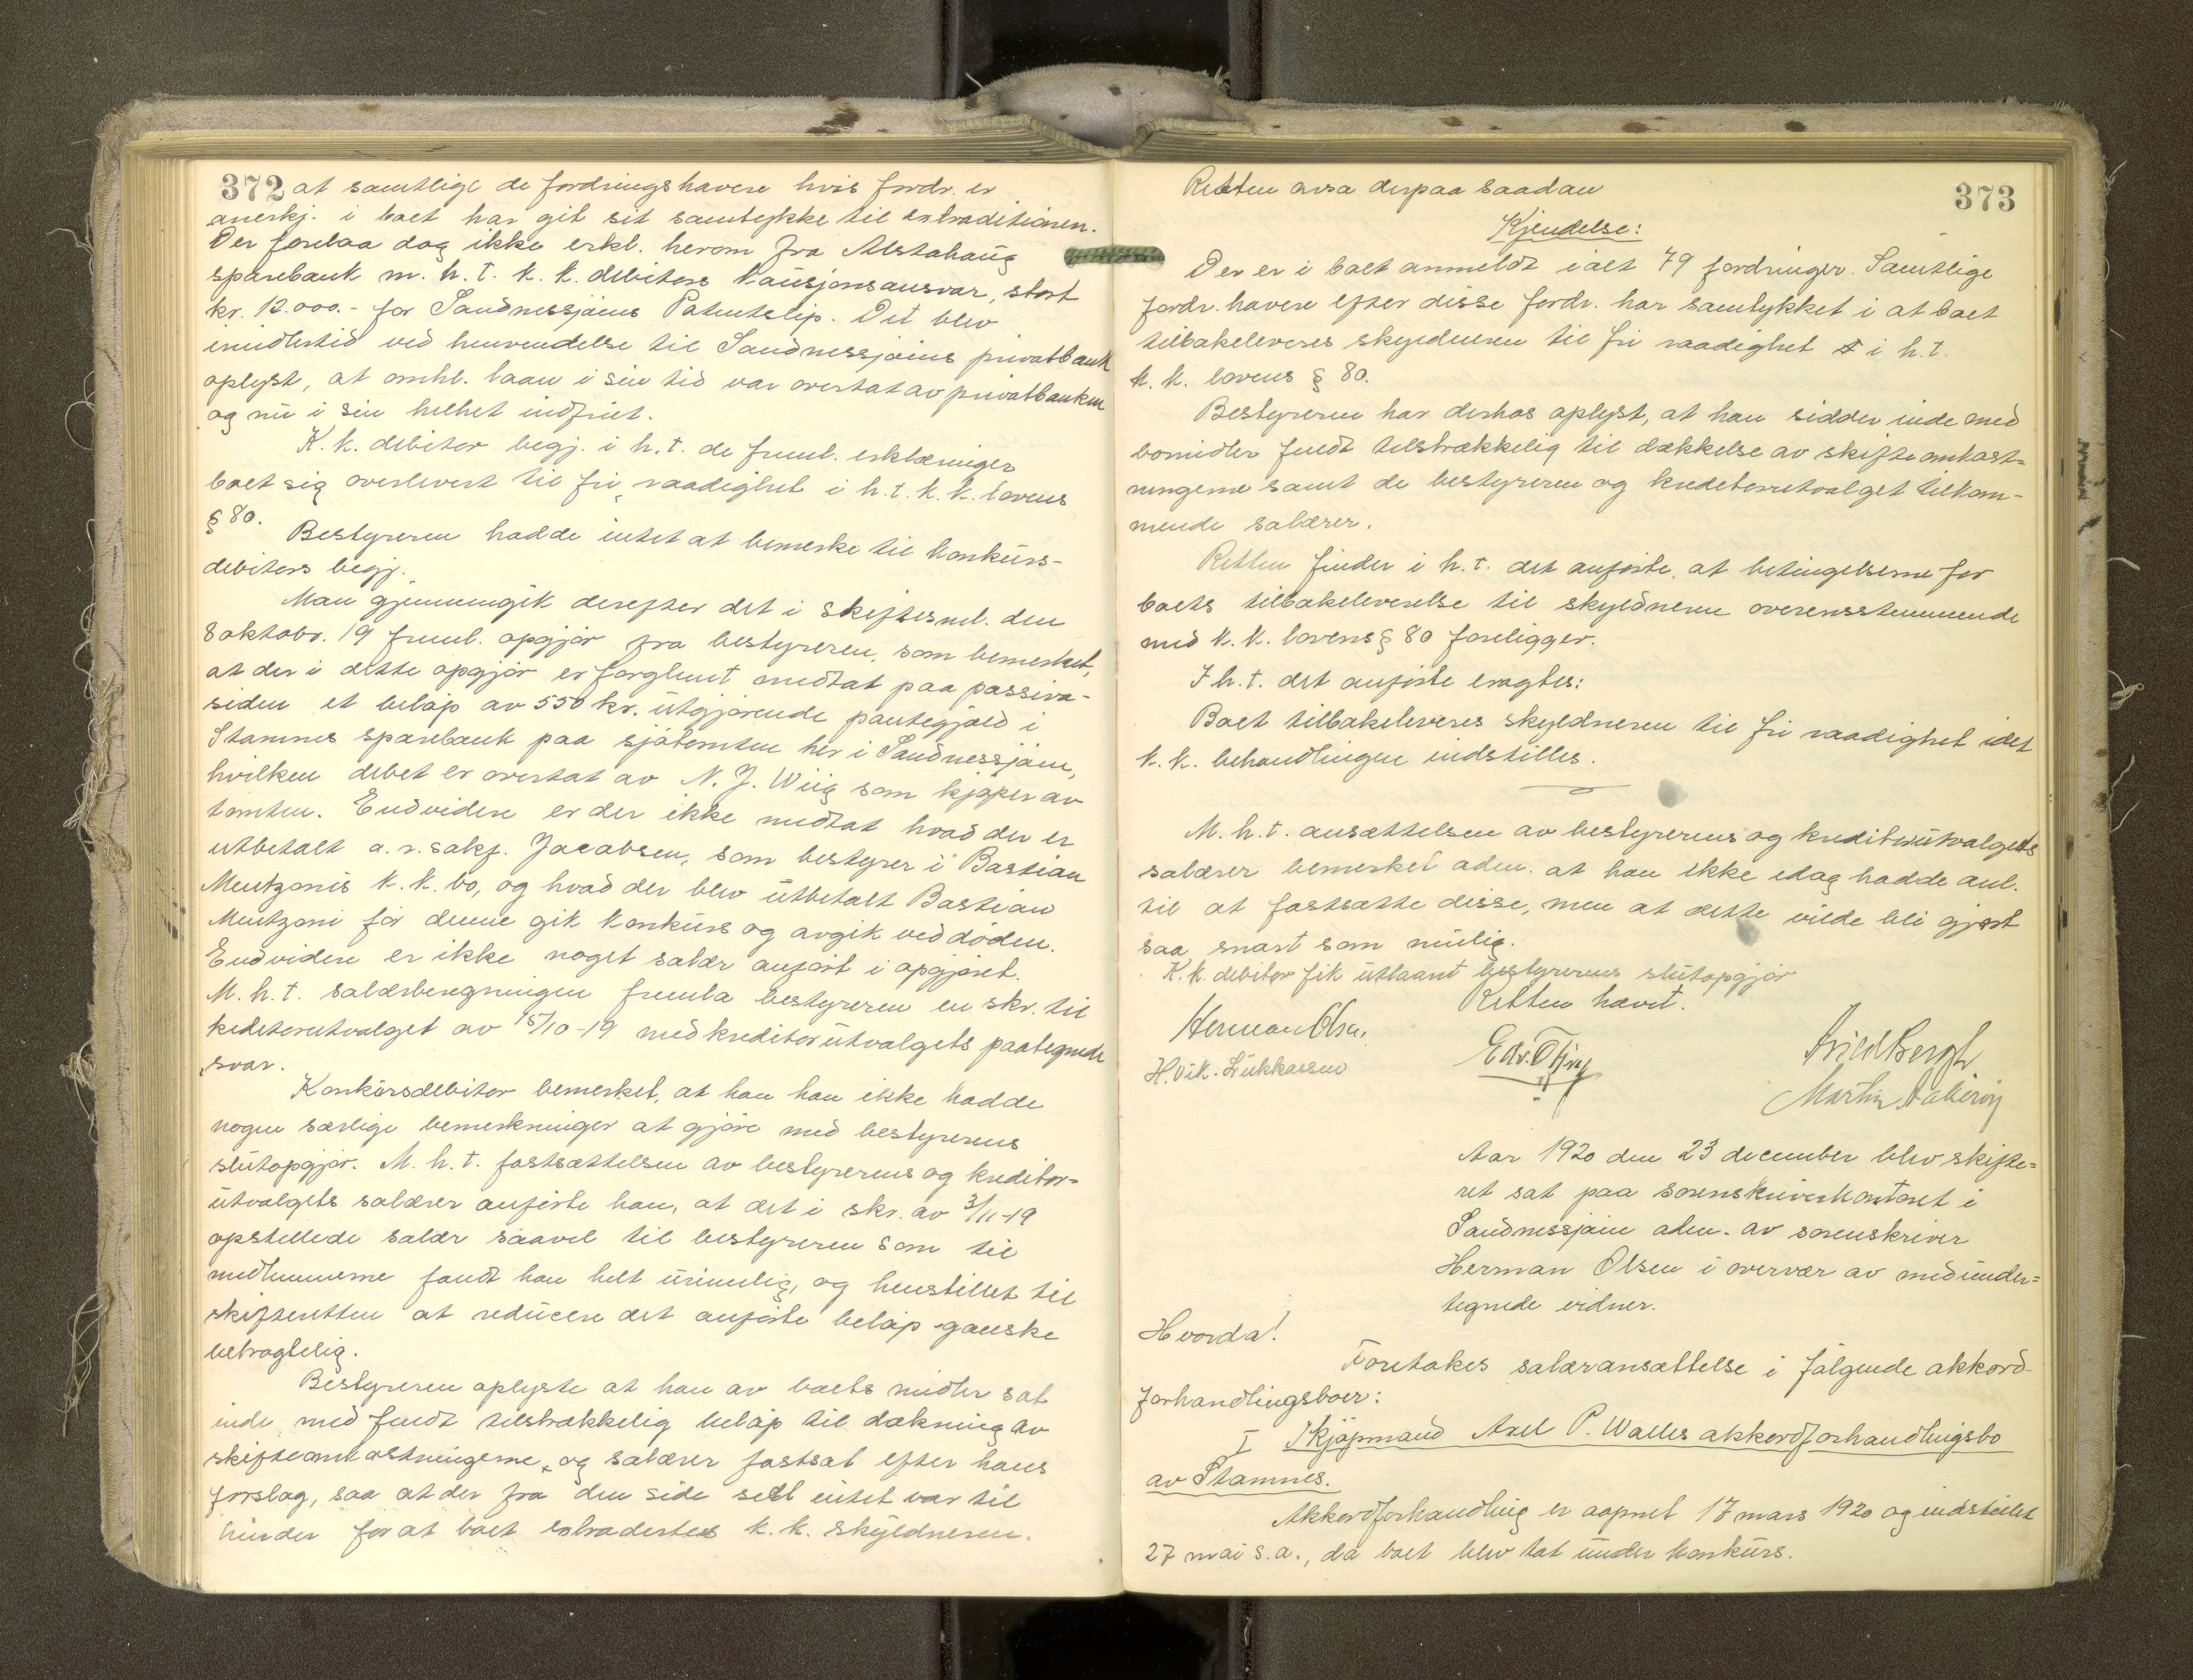 372 at samtlige de fordringshavere hvis fordr. er
anerkj. i boet har git sit samtykke til extraditionen.
Der forelaa dog ikke erkl. herom fra Alstahaug
sparebank m. h. t. k. k. debitors kausjonsansvar, stort
kr. 12.000.- for Sandnessjøens Patentslip. Det blev
imidlertid ved henvendelse til Sandnessjøens privatbank
oplyst, at omhl. laan i sin tid var overtat av privatbanken
og nu i sin helhet indfriet.
K. k. debitor begj. i h. t. de freml. erklæringer
boet sig overlevert til fri raadighet i h. t. k. k. lovens
§ 80.
Bestyreren hadde intet at bemerke til konkurs-
debitors begj.
Man gjennemgik derefter det i skiftesml. den
8 oktobr. 19 freml. opgjør fra bestyreren, som bemerket,
at der i dette opgjør er forglemt medtat paa passiva-
siden et beløp av 550 kr. utgjørende pantegjæld i
Stamnes sparebank paa sjøtomten her i Sandnessjøen,
hvilken debet er overtat av N. J. Wiig som kjøper av
tomten. Endvidere er der ikke medtat hvad der er
utbetalt o. r. sakf. Jacobsen, som bestyrer i Bastian
Mentzonis k. k. bo, og hvad der blev utbetalt Bastian
Mentzoni før denne gik konkurs og avgik ved døden.
Endvidere er ikke noget salær anført i opgjøret.
M. h. t. salærberegningen fremla bestyreren en skr. til
kreditorutvalget av 15/10-19 med kreditorutvalgets paategnede
svar.
Konkursdebitor bemerket, at han han ikke hadde
nogen særlige bemerkninger at gjøre med bestyrerens
slutopgjør. M. h. t. fastsættelsen av bestyrerens og kreditor=
utvalgets salærer anførte han, at det i skr. av 3/11-19
opstillede salær saavel til bestyreren som til
medlemmerne fandt han helt urimelig, og henstillet til
skifteretten at reducere det anførte beløp ganske
betragtelig.
Bestyreren oplyste at han av boets midler sat
inde med fuldt tilstrækkelig beløp til dækning av
skifteomkostningerne, og salærer fastsat efter hans
forslag, saa at der fra den side sett intet var til
hinder for at boet extradertes k. k. skyldneren.
Retten avsa derpaa saadan 373
Kjendelse:
Der er i boet anmeldt ialt 79 fordringer. Samtlige
fordr. havere efter disse fordr. har samtykket i at boet
tilbakeleveres skyldneren til fri raadighet i h. t.
k. k. lovens § 80.
Bestyreren har derhos oplyst, at han sidder inde med
bomidler fuldt tilstrækkelig til dækkelse av skifteomkost=
ningerne samt de bestyreren og kreditorutvalget tilkom-
mende salærer.
Retten finder i h. t. det anførte, at betingelserne for
boets tilbakeleverelse til skyldneren overensstemmende
med k. k. lovens § 80 foreligger.
I h. t. det anførte eragtes:
Boet tilbakeleveres skyldneren til fri raadighet idet
k. k. behandlingen indstilles.
M. h. t. ansættelsen av bestyrerens og kreditorutvalgets
salærer bemerket adm. at han ikke idag hadde anl.
til at fastsætte disse, men at dette vilde bli gjort
saa snart som mulig.
K. k. debitor fik utlaant bestyrerens slutopgjør
Retten hævet.
Herman Olsen
H. Vik. Lukkassen
Aar 1920 den 23 december blev skifte=
ret sat paa sorenskriverkontoret i
Sandnessjøen adm. av sorenskriver
Herman Olsen i overvær av medunder=
tegnede vidner.
Hvorda!
Foretakes salæransættelse i følgende akkord-
forhandlingsboer:
I kjøpmand Axel P. Walles akkordforhandlingsbo
av Stamnes.
Akkordforhandling er aapnet 17 mars 1920 og indstillet
27 mai s. a., da boet blev tat under konkurs.